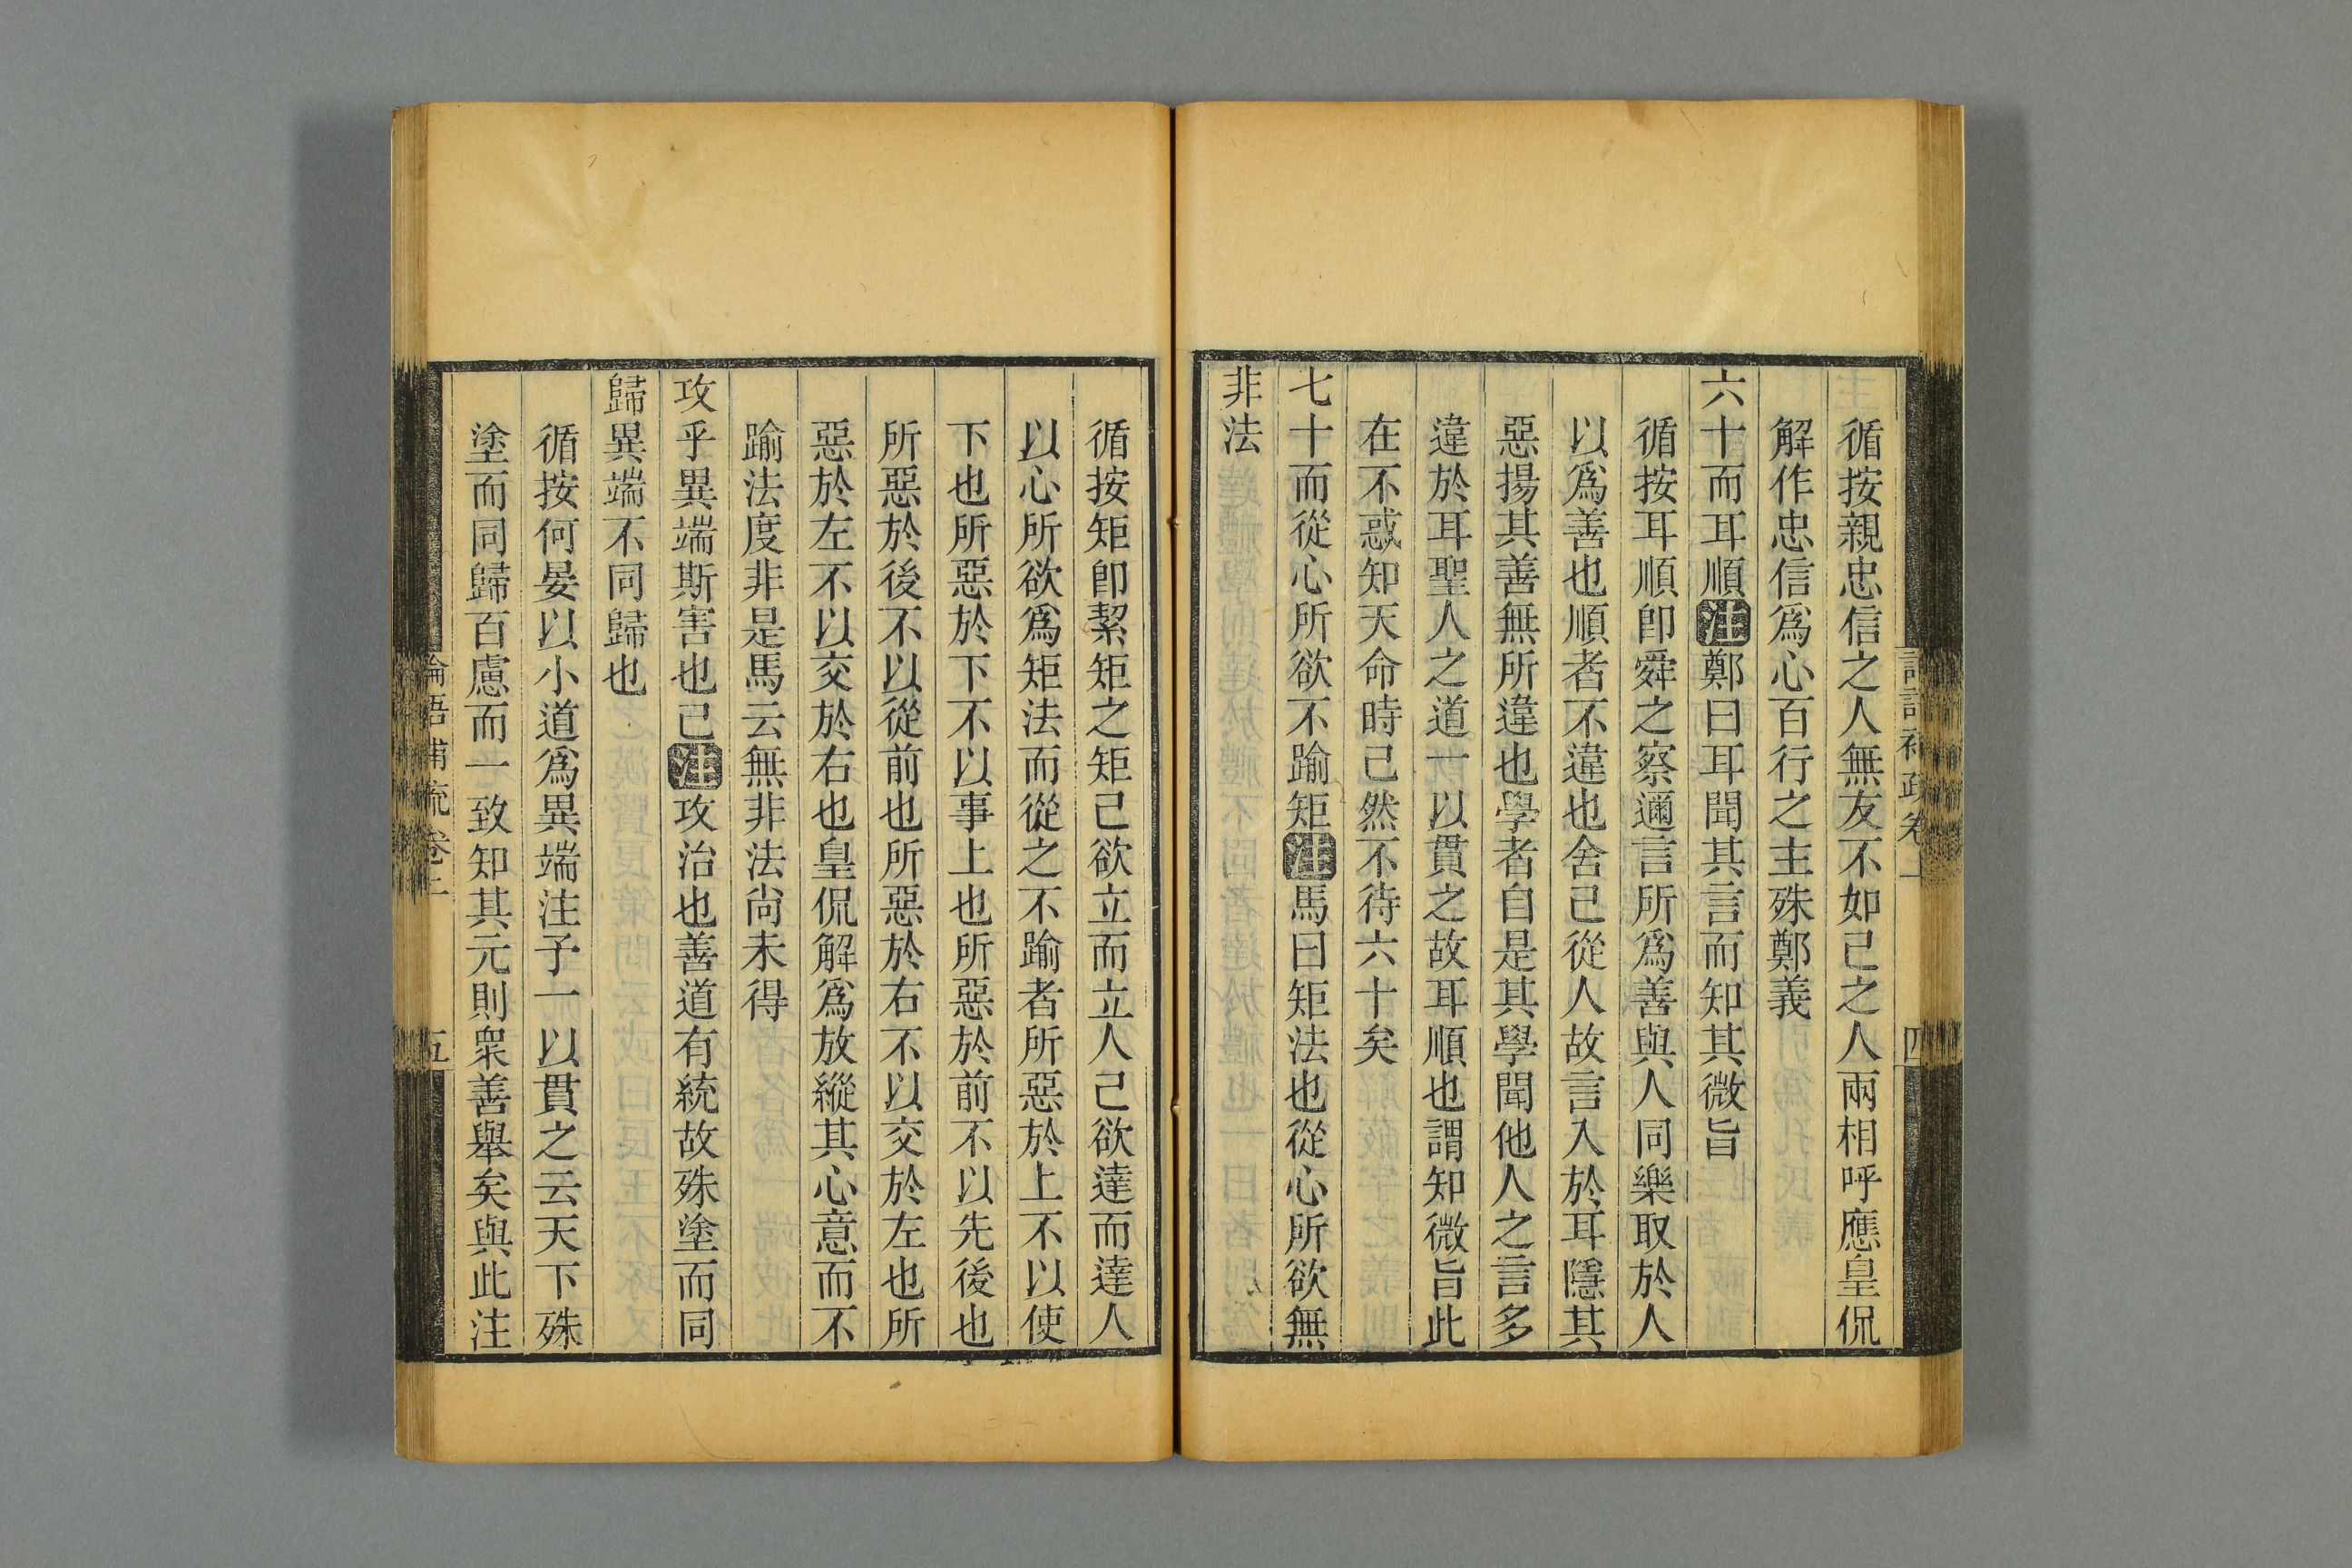 循按親忠信之人無友不如己之人兩相呼應皇侃
解作忠信爲心百行之主殊鄭義
六十而耳順注鄭曰耳聞其言而知其微旨
循按耳順卽舜之察邇言所爲善與人同樂取於人
以爲善也順者不違也舍己從人故言入於耳隱其
惡揚其善無所違也學者自是其學聞他人之言多
違於耳聖人之道一以貫之故耳順也謂知微旨此
在不惑知天命時已然不待六十矣
七十而從心所欲不踰矩注馬曰矩法也從心所欲無
非法
循按矩卽絜矩之矩己欲立而立人己欲達而達人
以心所欲爲矩法而從之不踰者所惡於上不以使
下也所惡於下不以事上也所惡於前不以先後也
所惡於後不以從前也所惡於右不以交於左也所
惡於左不以交於右也皇侃解爲放縱其心意而不
踰法度非是馬云無非法尚未得
攻乎異端斯害也已注攻治也善道有統故殊塗而同
歸異端不同歸也
循按何晏以小道爲異端注予一以貫之云天下殊
塗而同歸百慮而一致知其元則衆善舉矣與此注
論語補疏卷上
五